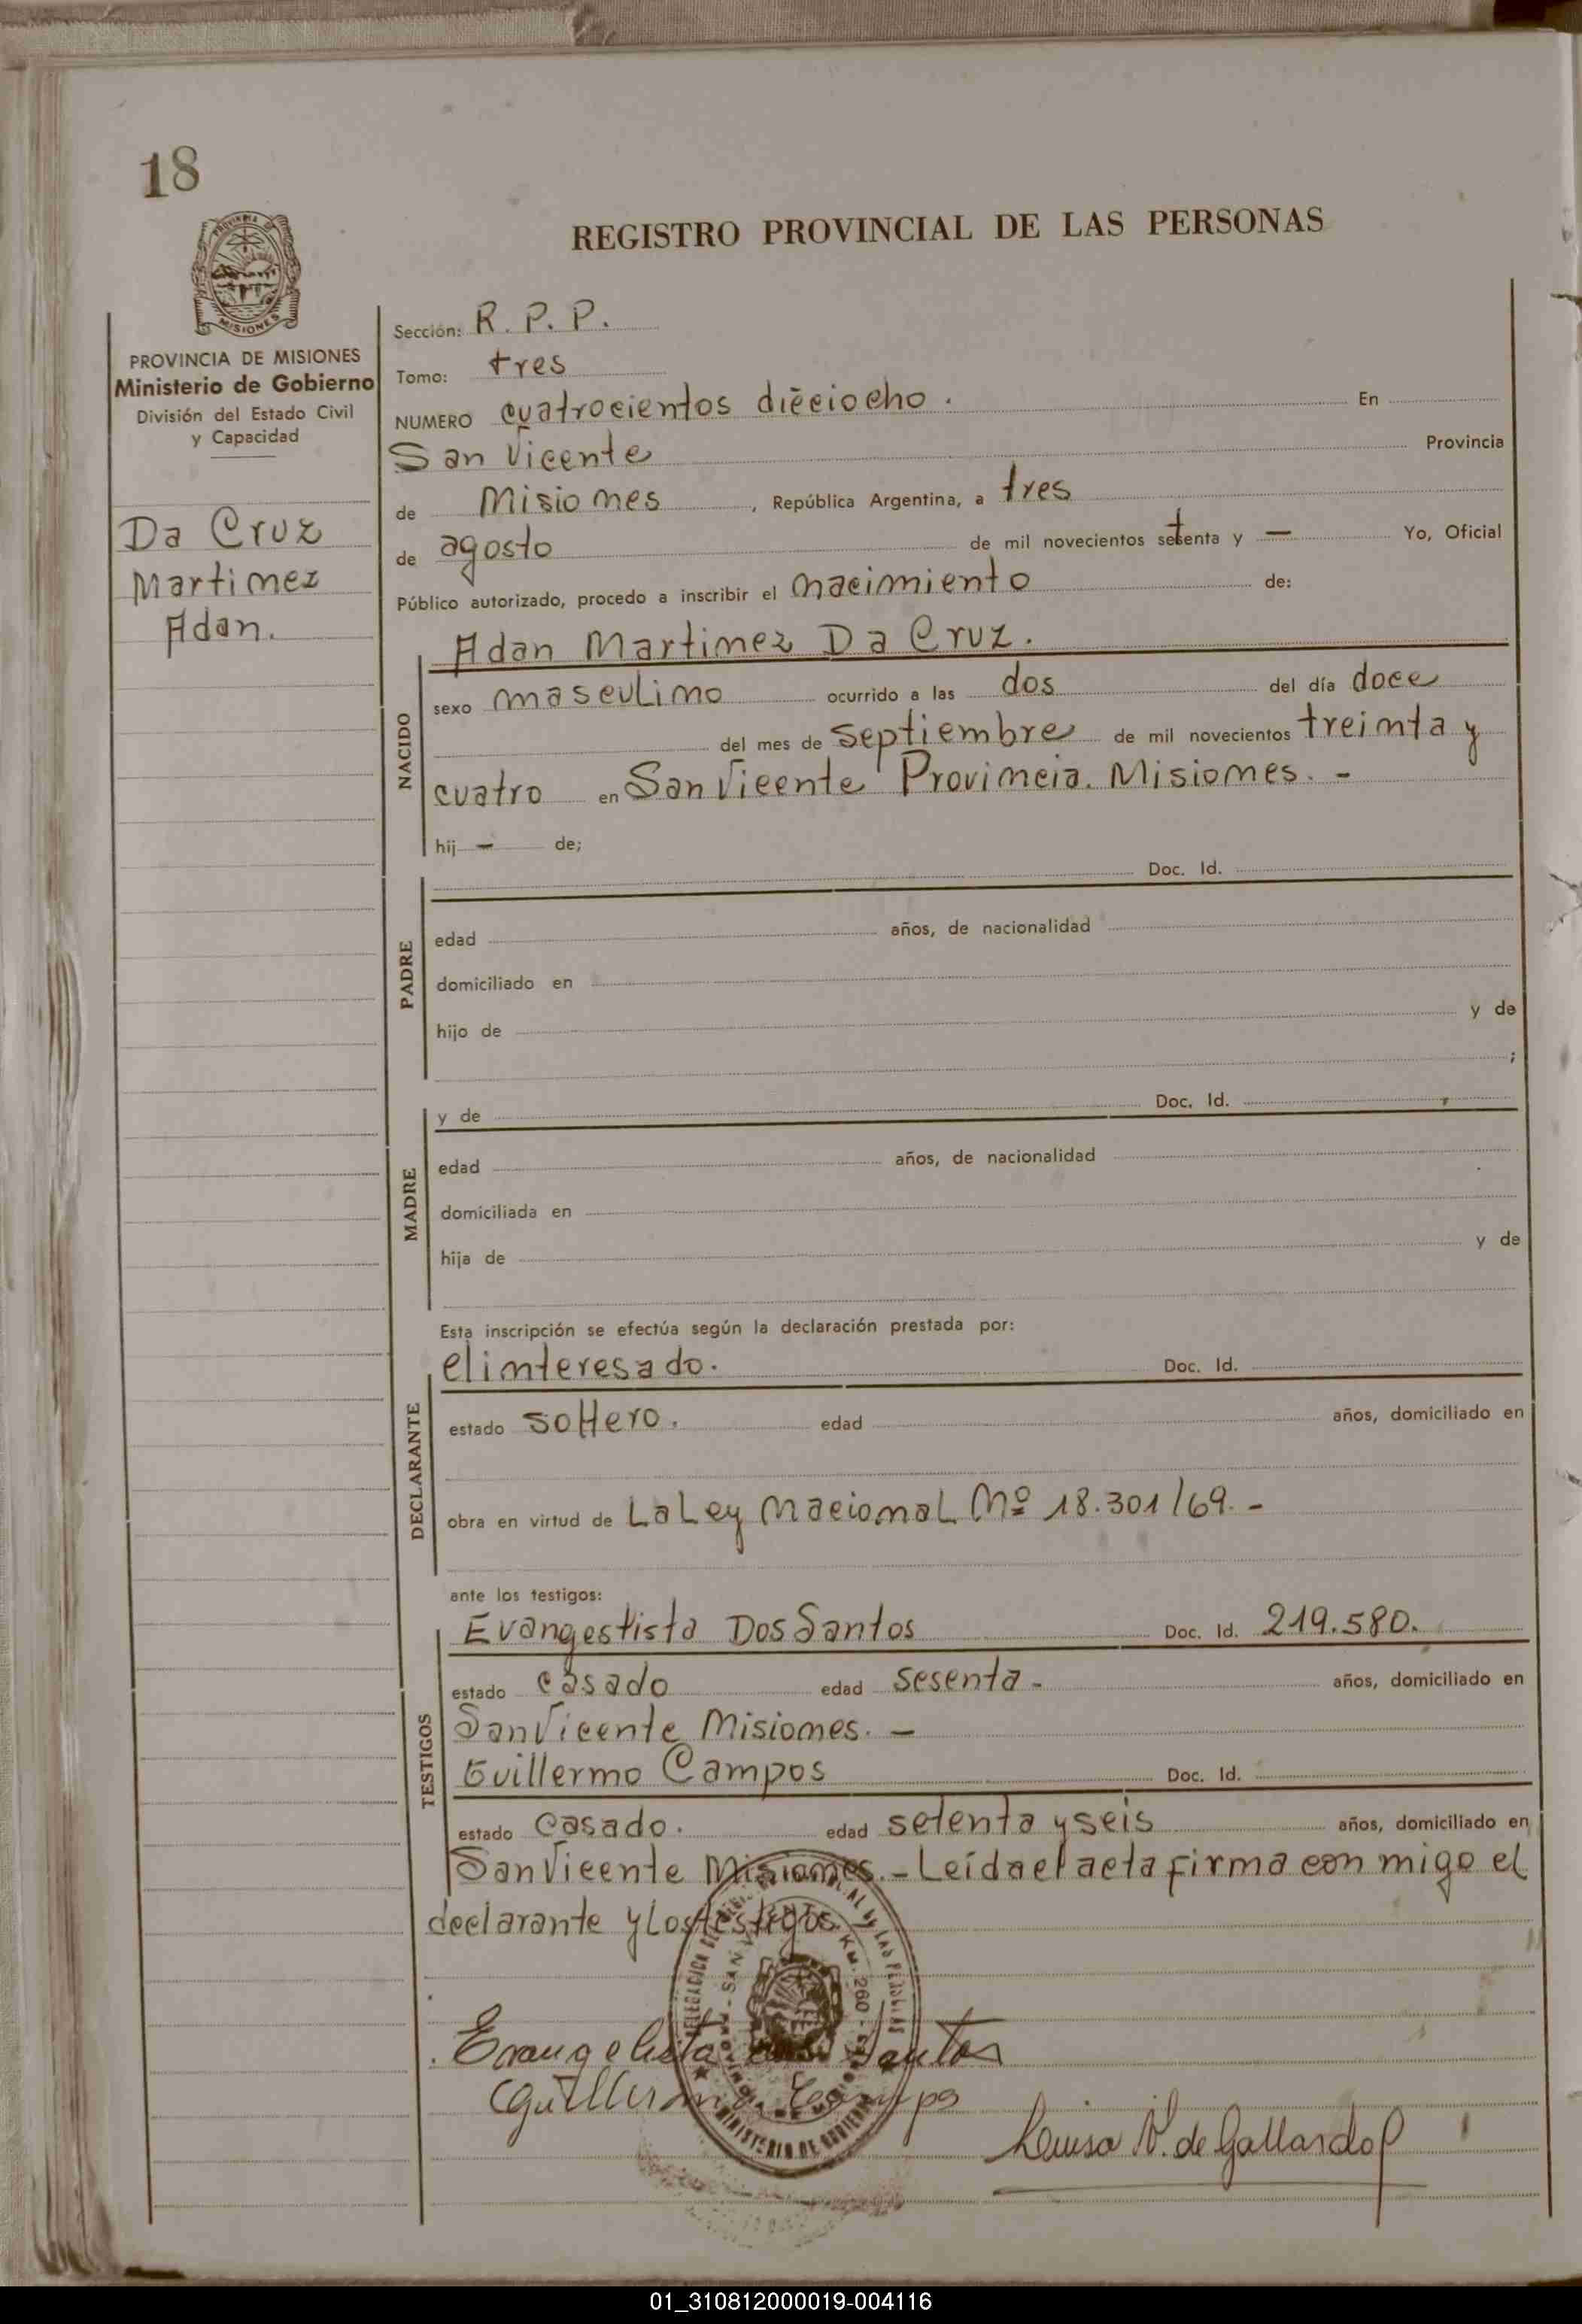 18
REGISTRO PROVINCIAL DE LAS PERSONAS
PROVINCIA DE MISIONES
Ministerio de Gobierno
División del Estado Civil
y Capacidad
Da Cruz
Martinez
Adan.
Sección: R. P. P.
Tomo: tres
NUMERO cuatrocientos dieciocho. En
San Vicente Provincia
de Misiones, República Argentina, a tres
de agosto de mil novecientos setenta y — Yo, Oficial
Público autorizado, procedo a inscribir el nacimiento de:
Adan Martinez Da Cruz.
NACIDO
sexo masculino ocurrido a las dos del día doce
del mes de septiembre de mil novecientos treinta y
cuatro en San Vicente Provincia. Misiones. -
hij — de;
Doc. Id.
PADRE
edad años, de nacionalidad
domiciliado en
hijo de y de
;
y de Doc. Id.
MADRE
edad años, de nacionalidad
domiciliada en
hija de y de
Esta inscripción se efectúa según la declaración prestada por:
el interesado. Doc. Id.
DECLARANTE
estado soltero. edad años, domiciliado en
obra en virtud de La Ley Nacional Nº 18.301/69. -
ante los testigos:
Evangestista Dos Santos Doc. Id. 219.580.
TESTIGOS
estado casado edad sesenta - años, domiciliado en
San Vicente Misiones. —
Guillermo Campos Doc. Id.
estado casado. edad setenta y seis años, domiciliado en
San Vicente Misiones. - Leída el acta firma con migo el
declarante y los testigos.
Evangelista dos Santos
Guillermo Campo
Luisa V. de Gallardo
01_310812000019-004116